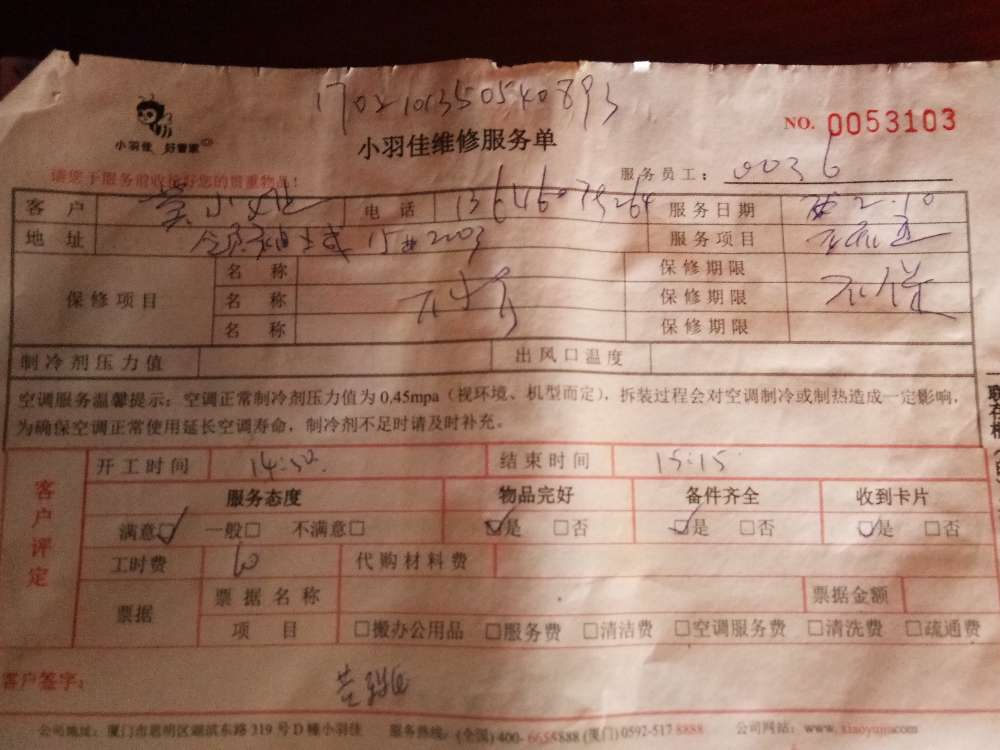 1702101350540893
小羽佳 好管家
小羽佳维修服务单
NO. 0053103
请您于服务前收检好您的贵重物品!
服务员工: 0036
客户 电话 13646079264 服务日期 2.10
地址 15 2203 服务项目
保修项目 名称 保修期限
名称 保修期限 不保
名称 保修期限
制冷剂压力值 出风口温度
空调服务温馨提示:空调正常制冷剂压力值为0.45mpa(视环境、机型而定),拆装过程会对空调制冷或制热造成一定影响,
为确保空调正常使用延长空调寿命,制冷剂不足时请及时补充。
客户评定
开工时间 14:30 结束时间 15:15
服务态度 物品完好 备件齐全 收到卡片
满意☑ 一般□ 不满意□ ☑是 □否 ☑是 □否 ☑是 □否
工时费 60 代购材料费
票据 票据名称 票据金额
项目 □搬办公用品 □服务费 □清洁费 □空调服务费 □清洗费 □疏通费
客户签字:
公司地址:厦门市思明区湖滨东路319号D幢小羽佳 服务热线:(全国)400-6654888 (厦门)0592-517 8888 公司网站: